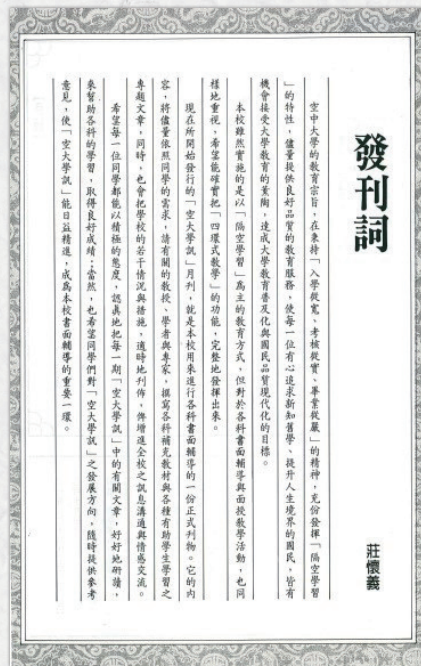 發刊詞
莊懷義
空中大學的教育宗旨，在秉持「入學從寬、考核從實、畢業從嚴」的精神，充份發揮「隔空學習
」的特性，儘量提供良好品質的教育服務，使每一位有心追求新知舊學、提升人生境界的國民，皆有
機會接受大學教育的薰陶，達成大學教育普及化與國民品質現代化的目標。
本校雖然實施的是以「隔空學習」為主的教育方式，但對於各科書面輔導與面授教學活動，也同
樣地重視，希望能確實把「四環式教學」的功能，完整地發揮出來。
現在所開始發行的「空大學訊」月刊，就是本校用來進行各科書面輔導的一份正式刊物。它的內
容，將儘量依照同學的需求，請有關的教授、學者與專家，撰寫各科補充教材與各種有助學生學習之
專題文章，同時，也會把學校的若干情況與措施，適時地刊佈，俾增進全校之訊息溝通與情感交流。
希望每一位同學都能以積極的態度，認真地把每一期「空大學訊」中的有關文章，好好地研讀，
來幫助各科的學習，取得良好成績；當然，也希望同學們對「空大學訊」之發展方向，隨時提供參考
意見，使「空大學訊」能日益精進，成為本校書面輔導的重要一環。